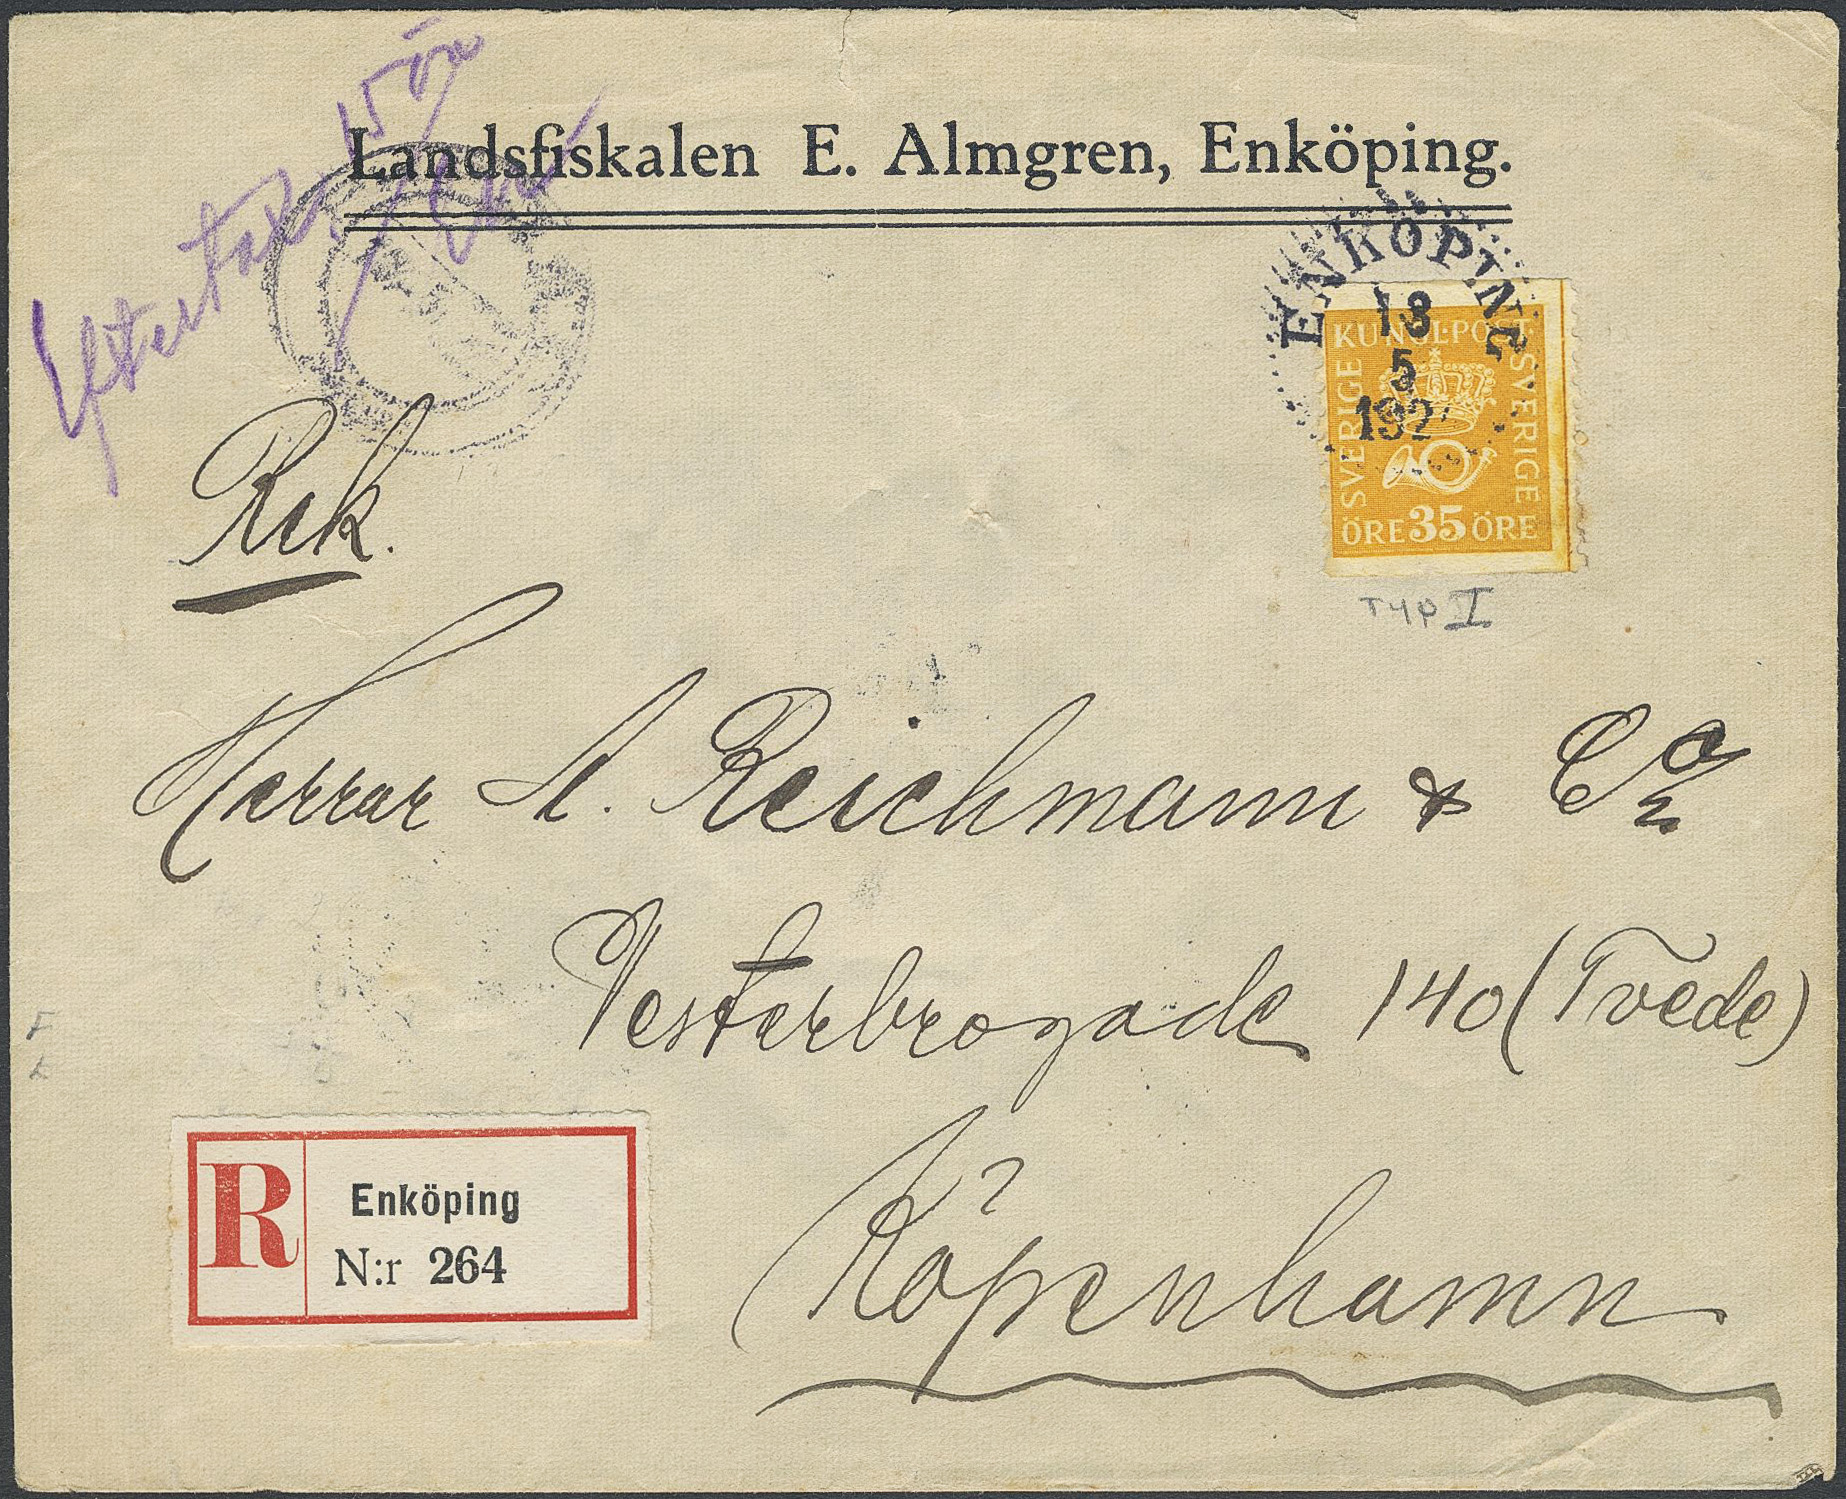 15 öre
Eftertax
Landsfiskalen E. Almgren, Enköping.
ENKÖPING
13
5
192
KUNGL·POST
SVERIGE
SVERIGE
ÖRE 35 ÖRE
TYP I
Rek.
Herrar A. Reichmann & Co
Vesterbrogade 140 (Tvede)
Köpenhamn
R
Enköping
N:r 264